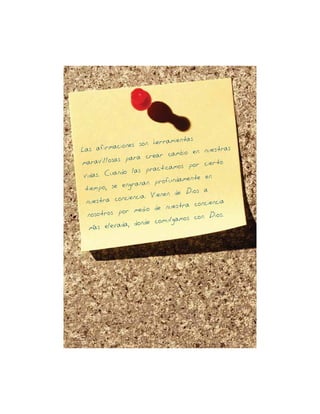 Las afirmaciones son herramientas
maravillosas para crear cambio en nuestras
vidas. Cuando las practicamos por cierto
tiempo, se engranan profundamente en
nuestra conciencia. Vienen de Dios a
nosotros por medio de nuestra conciencia
más elevada, donde comulgamos con Dios.